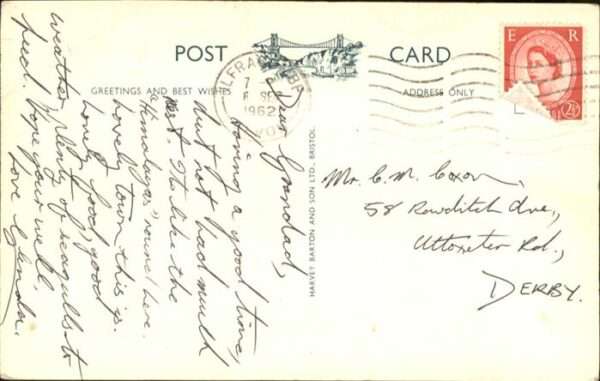 POST CARD
GREETINGS AND BEST WISHES
ADDRESS ONLY
ILFRACOMBE
6 SE
1962
E R
2½
HARVEY BARTON AND SON LTD., BRISTOL
Dear Grandad,
Having a good time,
but not had much
rest. It's like the
"Himalayas" round here.
Lovely town this is.
Lovely food, good
weather, plenty of seagulls to
feed. Hope your well,
Love Glenda.
Mr. C. M. Coxon,
58 Rowditch Ave.,
Uttoxeter Rd.,
DERBY.